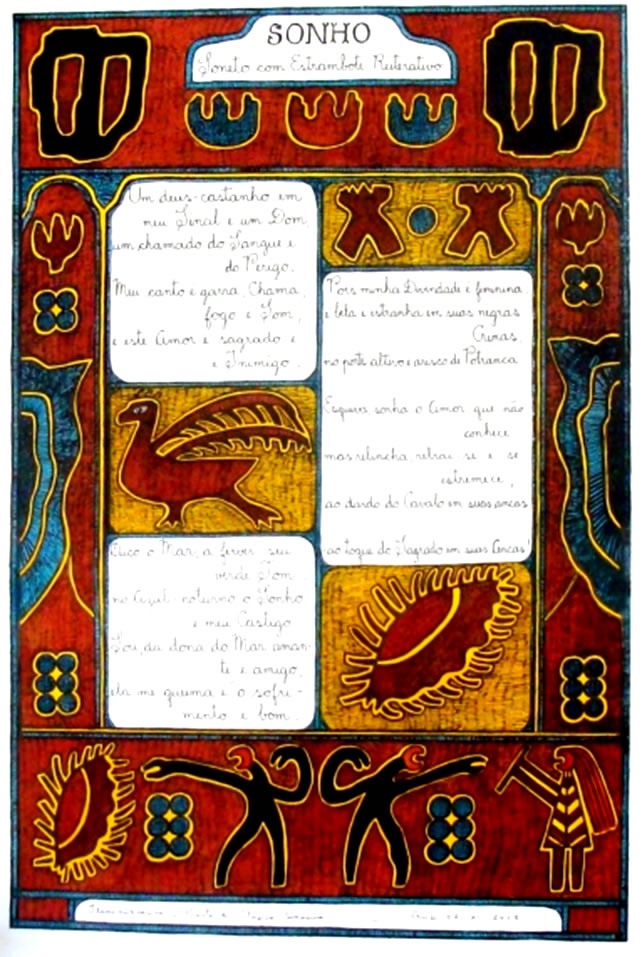 SONHO
Soneto com Estrambote Reiterativo
Um deus-castanho em
meu Sinal e um Dom
um chamado do Sangue e
do Perigo.
Meu canto é garra, Chama,
fogo e Som,
e este Amor é sagrado e
é Inimigo.
Ouço o Mar, a ferver seu
verde Tom
no Azul-noturno o Sonho
é meu Castigo
Sou, da dona do Mar aman-
te e amigo,
ela me queima e o sofri-
mento é bom.
Pois minha Divindade é feminina
e bela e estranha em suas negras
Crinas,
no porte altivo e arisco de Potranca.
Esquiva, sonha o Amor que não
conhece
mas relincha, retrai-se e se
estremece,
ao dardo do Cavalo em suas ancas
ao toque do Sagrado em suas Ancas!